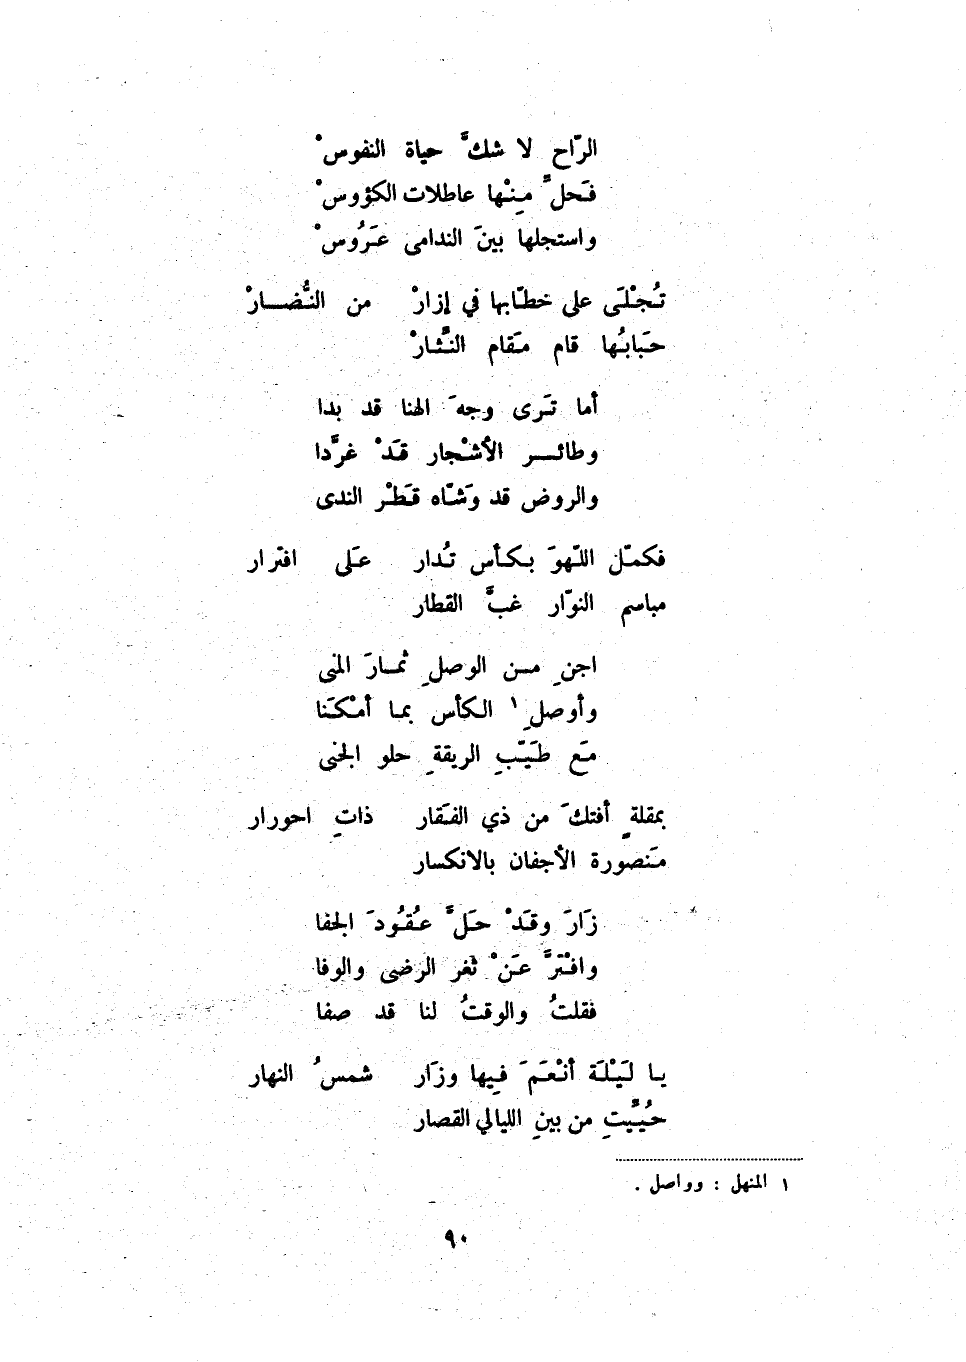 الرّاح لا شكَّ حياة النفوسْ
فَحلَّ مِنْها عاطلات الكؤوسْ
واستجلها بينَ الندامى عَرُوسْ
تُجْلَى على خطّابها في إزارْ من النُّضارْ
حَبابُها قام مَقام النَّثارْ
أما تَرى وجهَ الهنا قد بدا
وطائر الأشْجار قَدْ غرَّدا
والروض قد وَشّاه قَطْر الندى
فكمّل اللّهوَ بكأس تُدار عَلى افترار
مباسم النوّار غبَّ القطار
اجنِ من الوصلِ ثمارَ المنى
وأوصلِ ١ الكأس بما أمْكَنا
مَع طَيّبِ الريقةِ حلو الجنى
بمقلةٍ أفتكَ من ذي الفَقار ذاتِ احورار
مَنصورة الأجفان بالانكسار
زَارَ وقَدْ حَلَّ عُقُودَ الجفا
وافْتَرَّ عَنْ ثغر الرضى والوفا
فقلتُ والوقتُ لنا قد صفا
يا لَيْلَة أنْعَمَ فِيها وزَار شمسُ النهار
حُيِّيتِ من بينِ الليالي القصار
١ المنهل : وواصل .
٩٠